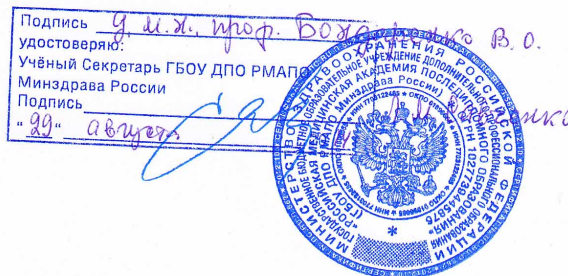 Подпись д.м.н. проф. В.О.
удостоверяю:
Учёный Секретарь ГБОУ ДПО РМАПО
Минздрава России
Подпись
"29" августа
МИНИСТЕРСТВО ЗДРАВООХРАНЕНИЯ РОССИЙСКОЙ ФЕДЕРАЦИИ
ГОСУДАРСТВЕННОЕ БЮДЖЕТНОЕ ОБРАЗОВАТЕЛЬНОЕ УЧРЕЖДЕНИЕ ДОПОЛНИТЕЛЬНОГО ПРОФЕССИОНАЛЬНОГО ОБРАЗОВАНИЯ
"РОССИЙСКАЯ МЕДИЦИНСКАЯ АКАДЕМИЯ ПОСЛЕДИПЛОМНОГО ОБРАЗОВАНИЯ"
(ГБОУ ДПО РМАПО Минздрава России)
ОГРН 1027739445876